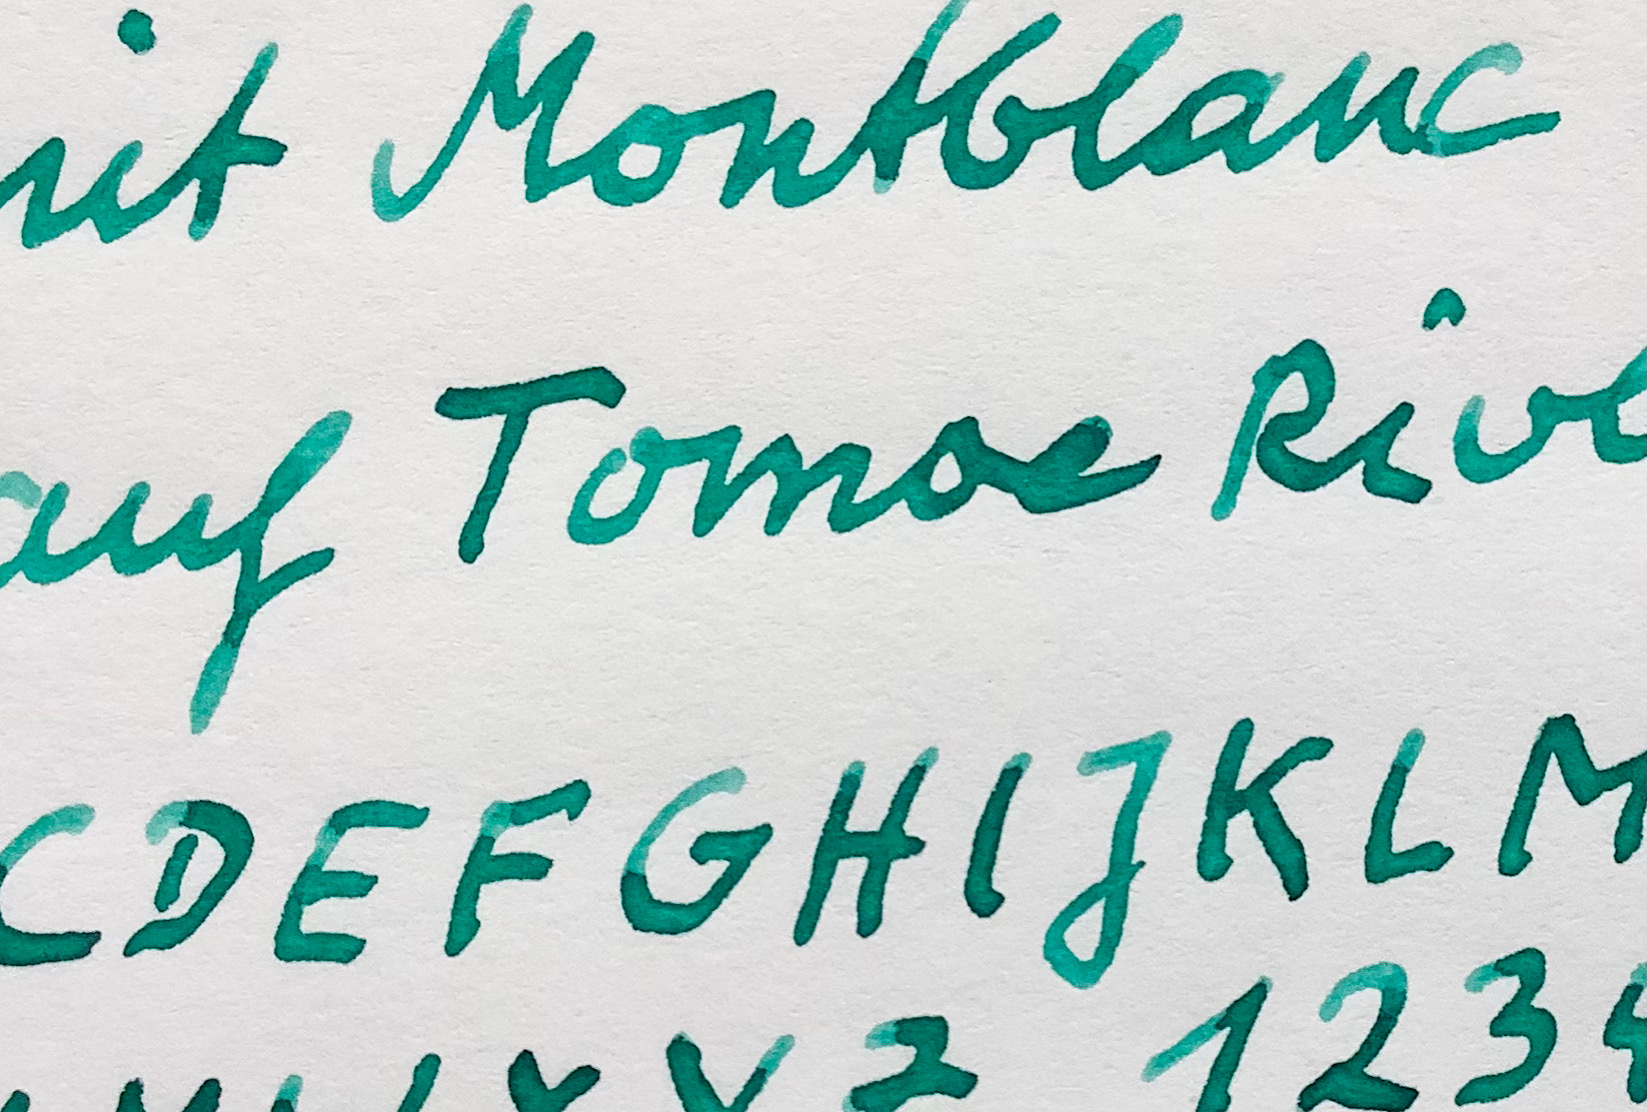 mit Montblanc
auf Tomoe River
C D E F G H I J K L M
V W X Y Z 1 2 3 4